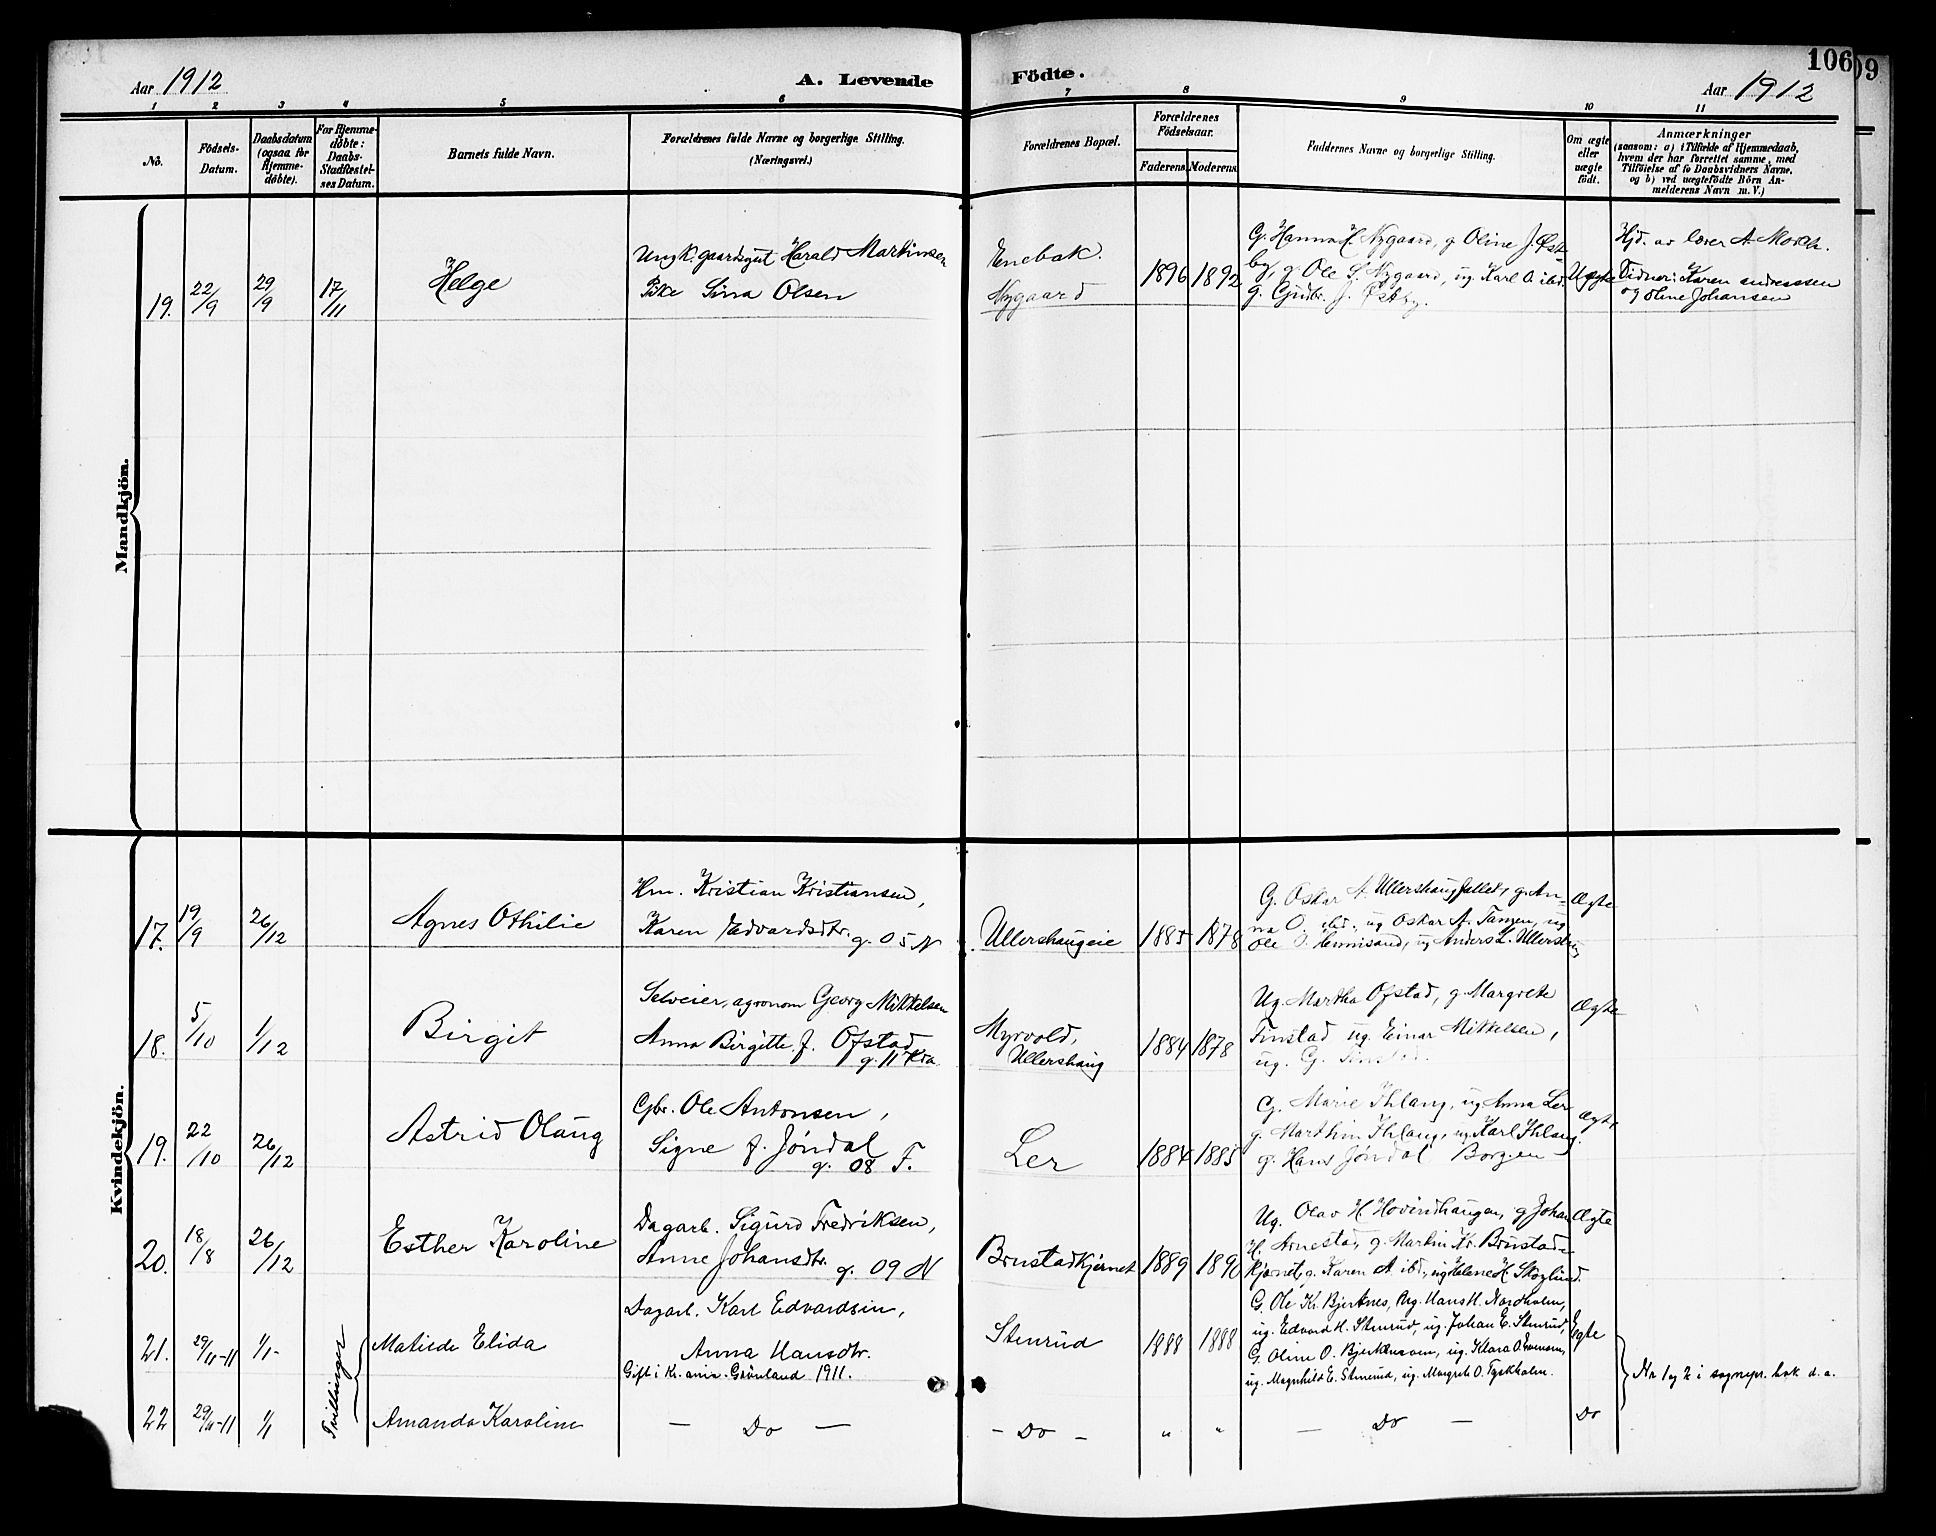 106
09
Aar 1912
A. Levende
Födte.
Aar 1912
1 2 3 4 5 6 7 8 9 10 11
No.
Födsels-
Datum.
Daabsdatum
(ogsaa for
Hjemme-
döbte).
For Hjemme-
döbte:
Daabs-
Stadfæstel-
ses Datum.
Barnets fulde Navn.
Forældrenes fulde Navne og borgerlige Stilling.
(Næringsvei.)
Forældrenes Bopæl.
Forældrenes
Födselsaar.
Faderens.
Moderens.
Faddernes Navne og borgerlige Stilling.
Om ægte
eller
uægte
födt.
Anmærkninger
(saasom: a) i Tilfælde af Hjemmedaab,
hvem der har forrettet samme, med
Tilföielse af to Daabsvidners Navne,
og b) ved uægtefödte Börn An-
melderens Navn m. V.)
Mandkjön.
19. 22/9 29/9 17/11
Helge
Ungk. gaardsgut Harald Martinsen
Pike Sina Olsen
Enebak.
Nygaard
1896 1892
G. Hanna H. Nygaard, g Oline J. Øst-
by, g. Ole S. Nygaard, ug. Karl O. ibd.
g. Gudbr. J. Østby.
Uægte
Hjd. av lærer A. Mork.
Vidner: Karen Andreassen
og Oline Johansen
Kvindekjön.
17. 19/9 26/12
Agnes Othilie
Hm. Kristian Kristiansen,
Karen Edvardsdtr. g. 05 N
Ullershaugeie
1885 1878
G. Oskar A. Ullershaugfallet, g. An-
na O. ibd., ug Oskar A. Tangen, ug
Ole O. Hemisand, ug Anders L. Ullershaug
Ægte
18. 5/10 1/12
Birgit
Selveier, agronom Georg Mikkelsen
Anna Birgitte f. Ofstad
g. 11 Kra.
Myrvold,
Ullershaug
1884 1878
Ug. Martha Ofstad, g. Margrete
Finstad ug. Einar Mikkelsen,
ug. G.
Ægte
19. 22/10 26/12
Astrid Olaug
Gbr. Ole Antonsen,
Signe f. Jøndal
g. 08 F.
Ler
1884 1885
G. Marie Ihlang, ug. Anna Ler
g. Marthin Ihlang, ug. Karl Ihlang.
g. Hans Jøndal Borgen
Ægte
20. 18/8 26/12
Esther Karoline
Dagarb. Sigurd Fredriksen,
Anne Johansdtr. g. 09 N
Brustadkjernet
1889 1890
Ug. Olav H. Hovindhaugen, g Johan
H. Arnestad, g. Martin Kr. Brustad-
kjernet, g. Karen A. ibd., ug Helene H. Skoglund.
Ægte
21. 29/11-11 1/1-
Tvillinger
Matilde Elida
Dagarb. Karl Edvardsen,
Anna Hansdtr.
Gift i Kr.ania. Grönland 1911.
Stenrud
1888 1888
G. Ole Kr. Bjerknes, Ug. Hans H. Nordholm,
ug. Edvard H. Stenrud, ug. Johan E. Stenrud,
G. Oline O. Bjerknesom, ug. Klara O. Evensen,
ug. Magnhild E. Stenrud, ug. Margrete O. Tyskholm.
Egte
No 1 og 2 i sognepr. bok d. a.
22 29/11-11 1/1
Amanda Karoline
— Do —
- Do -
" "
— Do —
Do